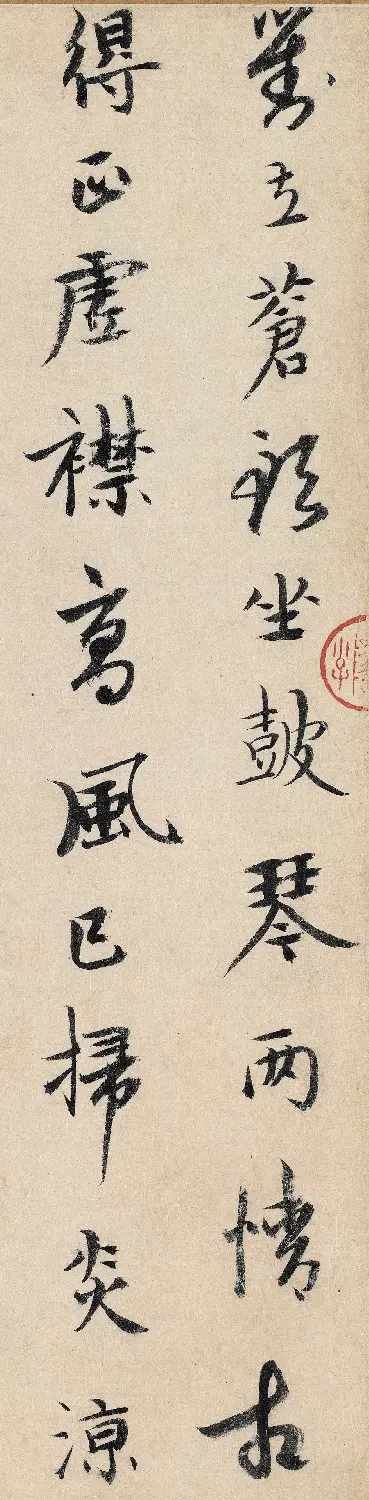 對立蒼頭坐鼓琴两情相
得正虛襟高風已掃炎涼